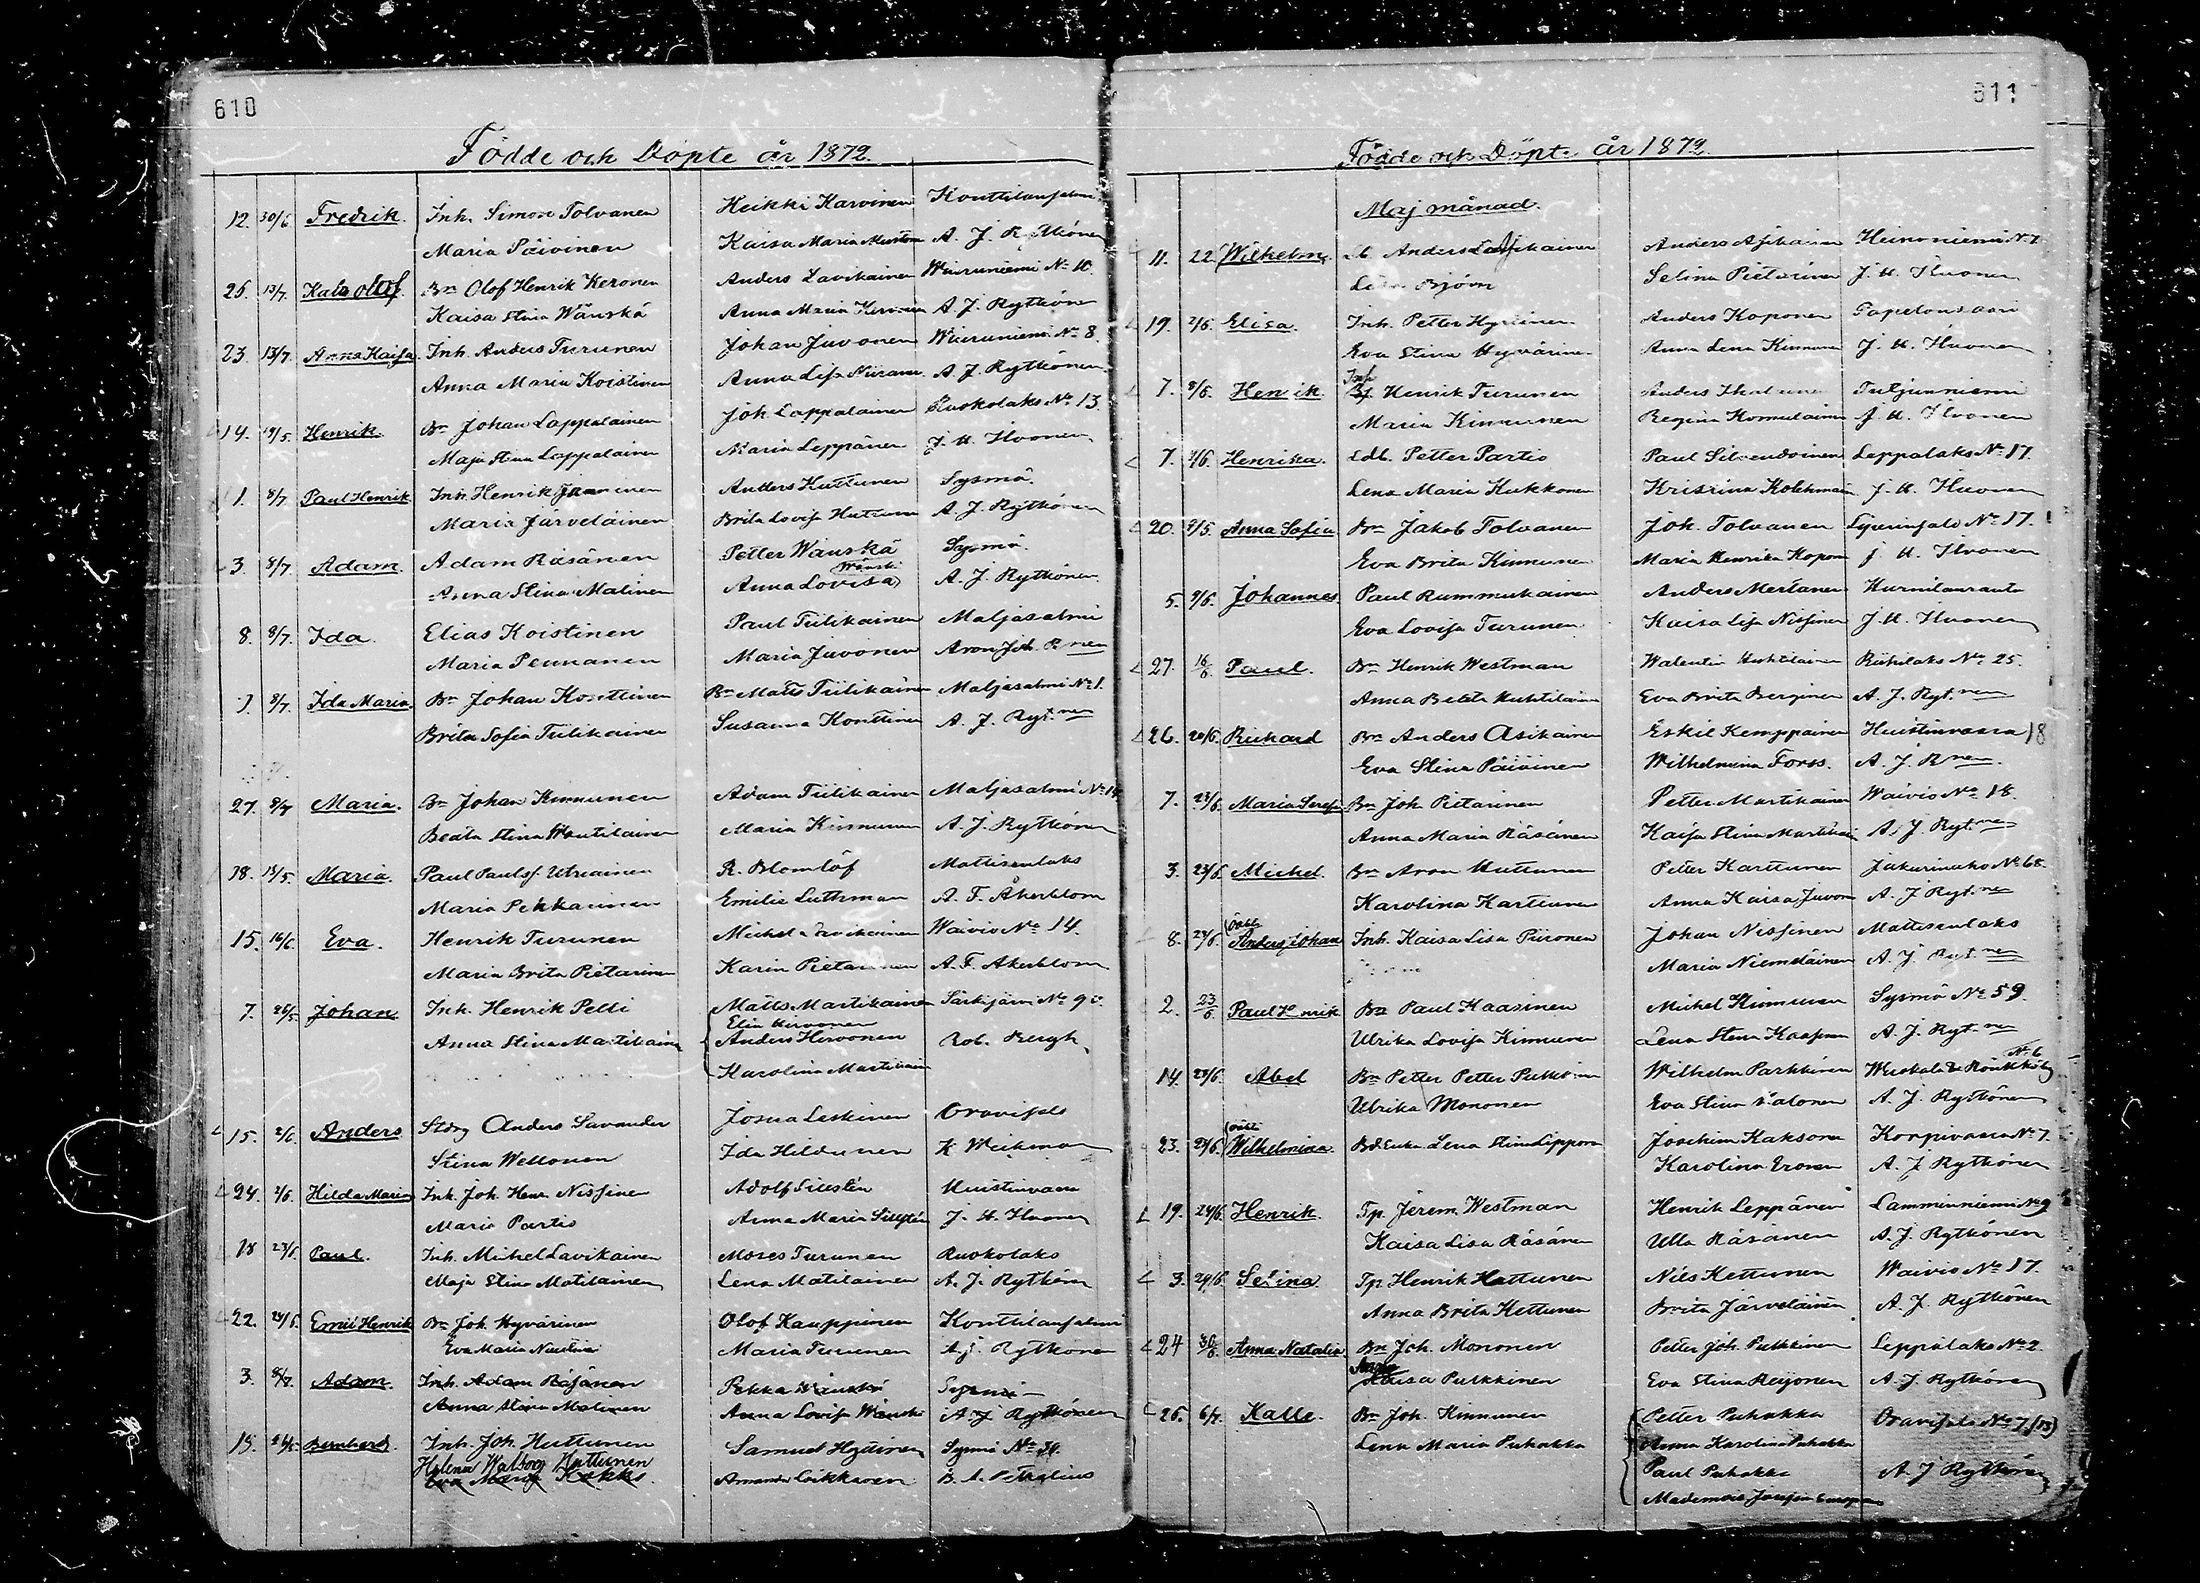 610
Födde och Döpte år 1872.
12. 30/6 Fredrik. Inh. Simon Tolvanen Heikki Karvinen Konttilansalmi
Maria Päivinen Kaisa Maria A. J. Rytkönen
25. 13/7. Olof Bn Olof Henrik Keronen Anders Lavikainen Wiuruniemi No 10.
Kaisa Stina Wänskä Anna Maria A. J. Rytkönen
23. 13/7. Anna Kaisa Inh. Anders Turunen Johan Juvonen Wiuruniemi No 8.
Anna Maria Koistinen Anna Lisa A. J. Rytkönen
14. 19/5. Henrik Bn Johan Lappalainen Joh. Lappalainen Ruokolaks No 13.
Maja Stina Lappalainen Maria Leppänen J. H. Ilvonen
1. 8/7 Paul Henrik Inh. Henrik Anders Huttunen Sysmä.
Maria Järveläinen Brita Lovisa A. J. Rytkönen
3. 8/7. Adam. Adam Räsänen Petter Wänskä Sysmä.
Wänskä
Anna Stina Malinen Anna Lovisa A. J. Rytkönen
8. 8/7. Ida. Elias Koistinen Paul Tiilikainen Maljasalmi
Maria Pennanen Maria Juvonen Aron Joh. R nen
8/7. Ida Maria. Bn Johan Konttinen Bn Matts Tiilikainen Maljasalmi No 1.
Brita Sofia Tiilikainen Susanna Konttinen A. J. Ryt. nen
27. Maria. Bn Johan Kinnunen Adam Tiilikainen Maljasalmi No
Beata Stina Maria Kinnunen A. J. Rytkönen
18. 15/5. Maria. Paul Paulss. Utriainen R. Blomlöf Mattisenlaks
Maria Pekkarinen Emilie Luthman A. F. Åkerblom
15. 16/6. Eva. Henrik Turunen Michel Lavikainen Waivio No 14.
Maria Brita Pietarinen Karin Pietarinen A. F. Åkerblom
7. 26/5 Johan Inh. Henrik Pelli Matts Martikainen Särkijärvi No 9
Elin Hirvonen
Anna Stina Martikainen Anders Hirvonen Rob. Bergh
Karolina Martikainen
15. 2/6. Anders Anders Savander Josua Leskinen Oravisalo
Stina Wellonen Ida Hildunen K Weikman
24. 2/6. Hilda Maria Inh. Joh. Henr. Nissinen Adolf Sillstén Huistinvaara
Maria Partio Anna Maria Sillstén J. H. Ilvonen
18 23/6. Paul. Inh. Michel Lavikainen Moses Turunen Ruokolaks
Maja Stina Matilainen Lena Matilainen A. J. Rytkönen
22. 24/6. Emil Henrik Bn Joh. Hyvärinen Olof Kauppinen Konttilansalmi
Eva Maria Maria Turunen A. J. Rytkönen
3. 8/7. Adam. Inh. Adam Räsänen Pekka Wänskä Sysmä
Anna Stina Malinen Anna Lovisa Wänskä A. J. Rytkönen
15. Bernhard. Inh. Joh. Huttunen Samuel Sysmä No
Helena Walborg Huttunen
Eva Maria Kokko. Amanda B. A. Petralius
611
Födde och Döpte år 1872.
Maj månad.
11. 22 Wilhelm. Anders Anders Asikainen Heinoniemi No
Lisa Björn Selina Pietarinen J. H. Ilvonen
19. 2/6. Elisa. Inh. Petter Hyvärinen Anders Koponen
Eva Stina Hyvärinen Anna Lena Kinnunen J. H. Ilvonen
Inh
7. 8/6. Henrik. Henrik Turunen Anders
Maria Kinnunen Regina Kormulainen J. H. Ilvonen
7. 2/6. Henrika. Petter Partio Paul Silvendoinen Leppälaks No 17.
Lena Maria Kukkonen Kristina Kolehmain J. H. Ilvonen
20. Anna Sofia Bn Jakob Tolvanen Joh. Tolvanen No 17.
Eva Brita Kinnunen Maria Henrika Kopon J. H. Ilvonen
5. 9/6. Johannes. Paul Rummukainen Anders Mertanen Hurnilanranta
Eva Lovisa Turunen Kaisa Lisa Nissinen J. H. Ilvonen
27. 16/6 Paul. Bn Henrik Westman Walentin Huhtilainen Riihilaks No 25.
Anna Beata Huhtilainen Eva Brita Berginen A. J. Ryt. nen
26. 20/6. Rickard Bn Anders Asikainen Eskil Kemppainen Huistinvaara 18
Eva Stina Päivinen Wilhelmina Forss. A. J. R nen
7. 23/6. Maria Seraf. Bn Joh. Pietarinen Petter Martikainen Waivio No 18.
Anna Maria Räsänen Kaisa Stina Martikain A. J. Ryt. nen
3. 23/6. Michel. Bn Aron Huttunen Petter Karttunen
Karolina Karttunen Anna Kaisa Juvon A. J Ryt. nen
oäkta
8. 24/6. Anders Johan Inh. Kaisa Lisa Piironen Johan Nissinen Mattisenlaks
Maria Niemeläinen A. J. Ryt. nen
2. 23/6 Paul Henrik Bn Paul Kaasinen Michel Kinnunen Sysmä No 59.
Ulrika Lovisa Kinnunen Lena Stina A. J. Ryt. nen
No 6
14. 23/6. Abel Bn Petter Petter Wilhelm Parkkinen
Ulrika Mononen Eva Stina A. J. Rytkönen
oäkta
23. 24/6. Wilhelmina. Bd.Enka Lena Stina Lipponen Joachim Kaksonen Korpivaara No 7.
Karolina Eronen A. J. Rytkönen
19. 24/6. Henrik. Tp. Jerem. Westman Henrik Leppänen Lamminniemi No 9
Kaisa Lisa Räsänen Ulla Räsänen A. J. Rytkönen
3. 29/6. Selina Tp. Henrik Hattunen Nils Kettunen Waivio No 17.
Anna Brita Kettunen Brita Järveläinen A. J. Rytkönen
24 30/6. Anna Natalia. Bn Joh. Mononen Petter Joh. Pulkkinen Leppälaks No 2.
Kaisa Pulkkinen Eva Stina Reijonen A. J. Rytkönen
26. 6/7. Kalle. Bn Joh. Kinnunen Petter Puhakka Oravisalo No 7
Lena Maria Puhakka Anna Karolina Puhakka
Paul Puhakka A. J Rytkönen
Josefin